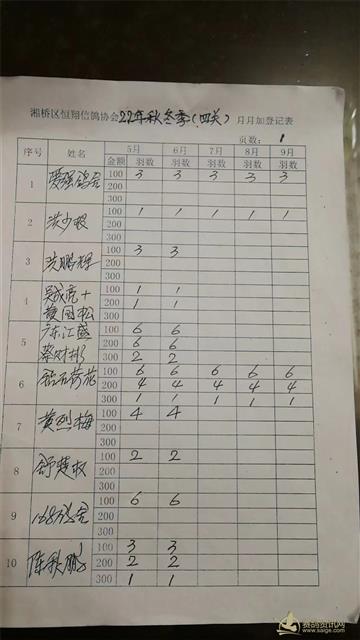 湘桥区恒翔信鸽协会22年秋冬季(四关)月月加登记表
页数: 1
序号 姓名 5月 6月 7月 8月 9月
金额 羽数 羽数 羽数 羽数 羽数
1 爱强鸽舍 100 3 3 3 3 3
200
300
2 洪少 100 1 1 1 1 1
200
300
3 洪鹏辉 100 3 3
200
300
4 吴成亮+ 100 1 1
黄国松 200 1 1
300
5 广东江盛 100 6 6
蔡财彬 200 6 6
300 2 2
6 钻石荷花 100 6 6 6 6 6
200 4 4 4 4 4
300 1 1 1 1 1
7 黄烈梅 100 4 4
200
300
8 舒楚 100 2 2
200
300
9 168鸽舍 100 6 6
200
300
10 陈彩鹏 100 3 3
200 2 2
300 1 1
赛鸽资讯网
www.saige.com